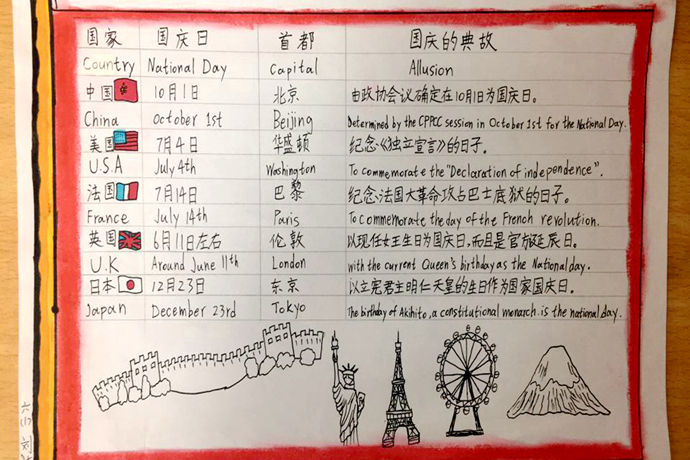 国家 国庆日 首都 国庆的典故
Country National Day Capital Allusion
中国 10月1日 北京 由政协会议确定在10月1日为国庆日。
China October 1st Beijing Determined by the CPPCC session in October 1st for the National Day.
美国 7月4日 华盛顿 纪念《独立宣言》的日子。
U.S.A July 4th Washington To commemorate the "Declaration of independence".
法国 7月14日 巴黎 纪念法国大革命攻占巴士底狱的日子。
France July 14th Paris To commemorate the day of the French revolution.
英国 6月11日左右 伦敦 以现任女王生日为国庆日,而且是官放延辰日。
U.K Around June 11th London with the current Queen's birthday as the National day.
日本 12月23日 东京 以立宪君主明仁天皇的生日作为国家国庆日。
Japan December 23rd Tokyo The birthday of Akihito, a constitutional monarch. is the national day.
六(1) 刘